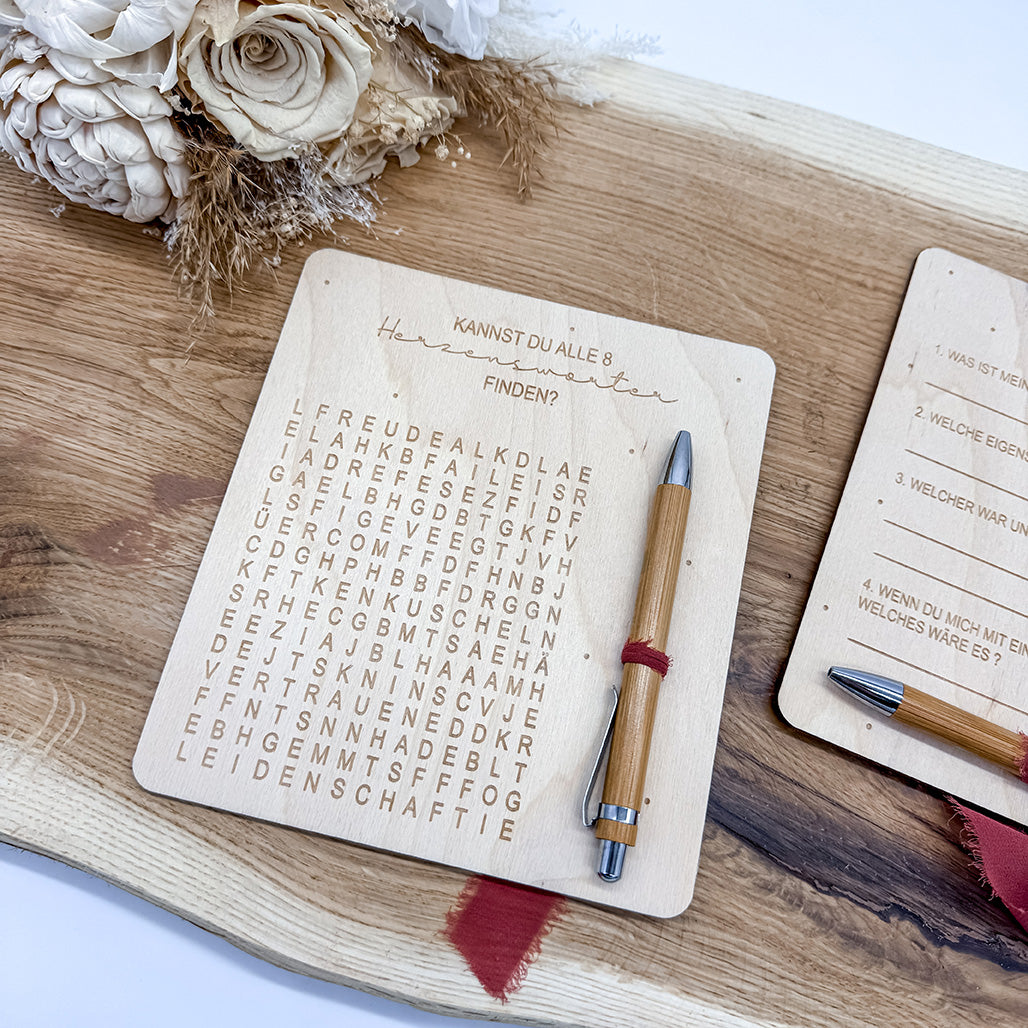 KANNST DU ALLE 8
Herzenswörter
FINDEN?
L F R E U D E A L K D L A E
E L A H K B F A I L E I S R
I A D R E F E S E Z F I D F
G A E L B H G D B T G K F V
L S F I G E V E E G T J V H
Ü E R C O M F F D F H N B J
C D G H P H B B F D R G G N
K F T K E N K U S C H E L N
S R H E C G B M T S A E H Ä
E E Z I A J B L H A A A M H
D E J T S K N I N S C V J E
V E R T R A U E N E D D K R
F F N T S N N H A D E B L T
E B H G E M M T S F F F O G
L E I D E N S C H A F T I E
1. WAS IST MEIN
2. WELCHE EIGENS
3. WELCHER WAR UN
4. WENN DU MICH MIT EIN
WELCHES WÄRE ES ?